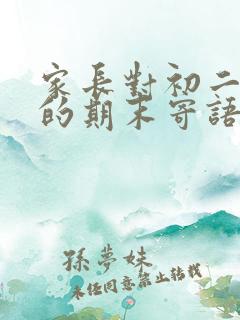 家長對初二
的期末寄語
孫夢妹
未經同意禁止轉載